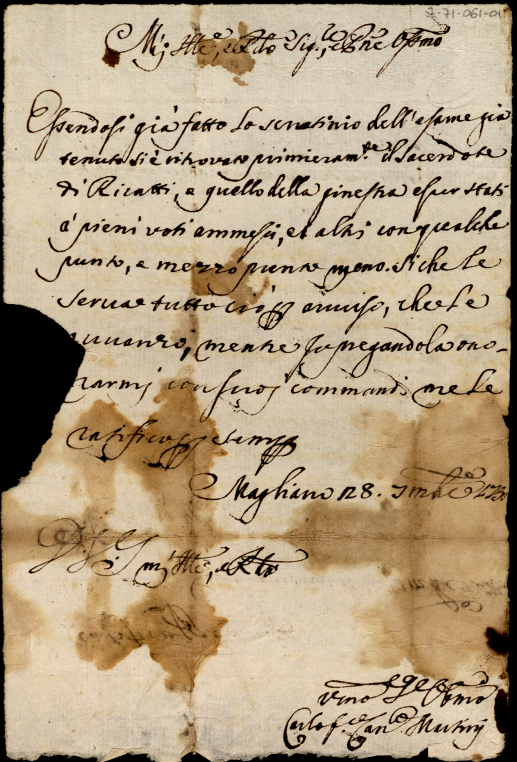 7-71-061-01
M. Ill.e, e R.do Sig.re, e P.ne Oss.mo
Essendosi già fatto lo scrutinio dell'esame già
tenuto si è ritrovato primieram.te il sacerdote
di Ricatti, e quello della ginestra esser stati
à pieni voti ammessi, et altri con qualche
punto, e mezzo punto meno. Si che le
serva tutto ciò p avviso, che le
avvanzo, mentre pregandola ono-
rarmi con suoi commandi me le
ratifico p sempre
Magliano 28. 7mbre
V. S. M. Ill.e, e R.da
Obmo
Carlo Can.co Martinj